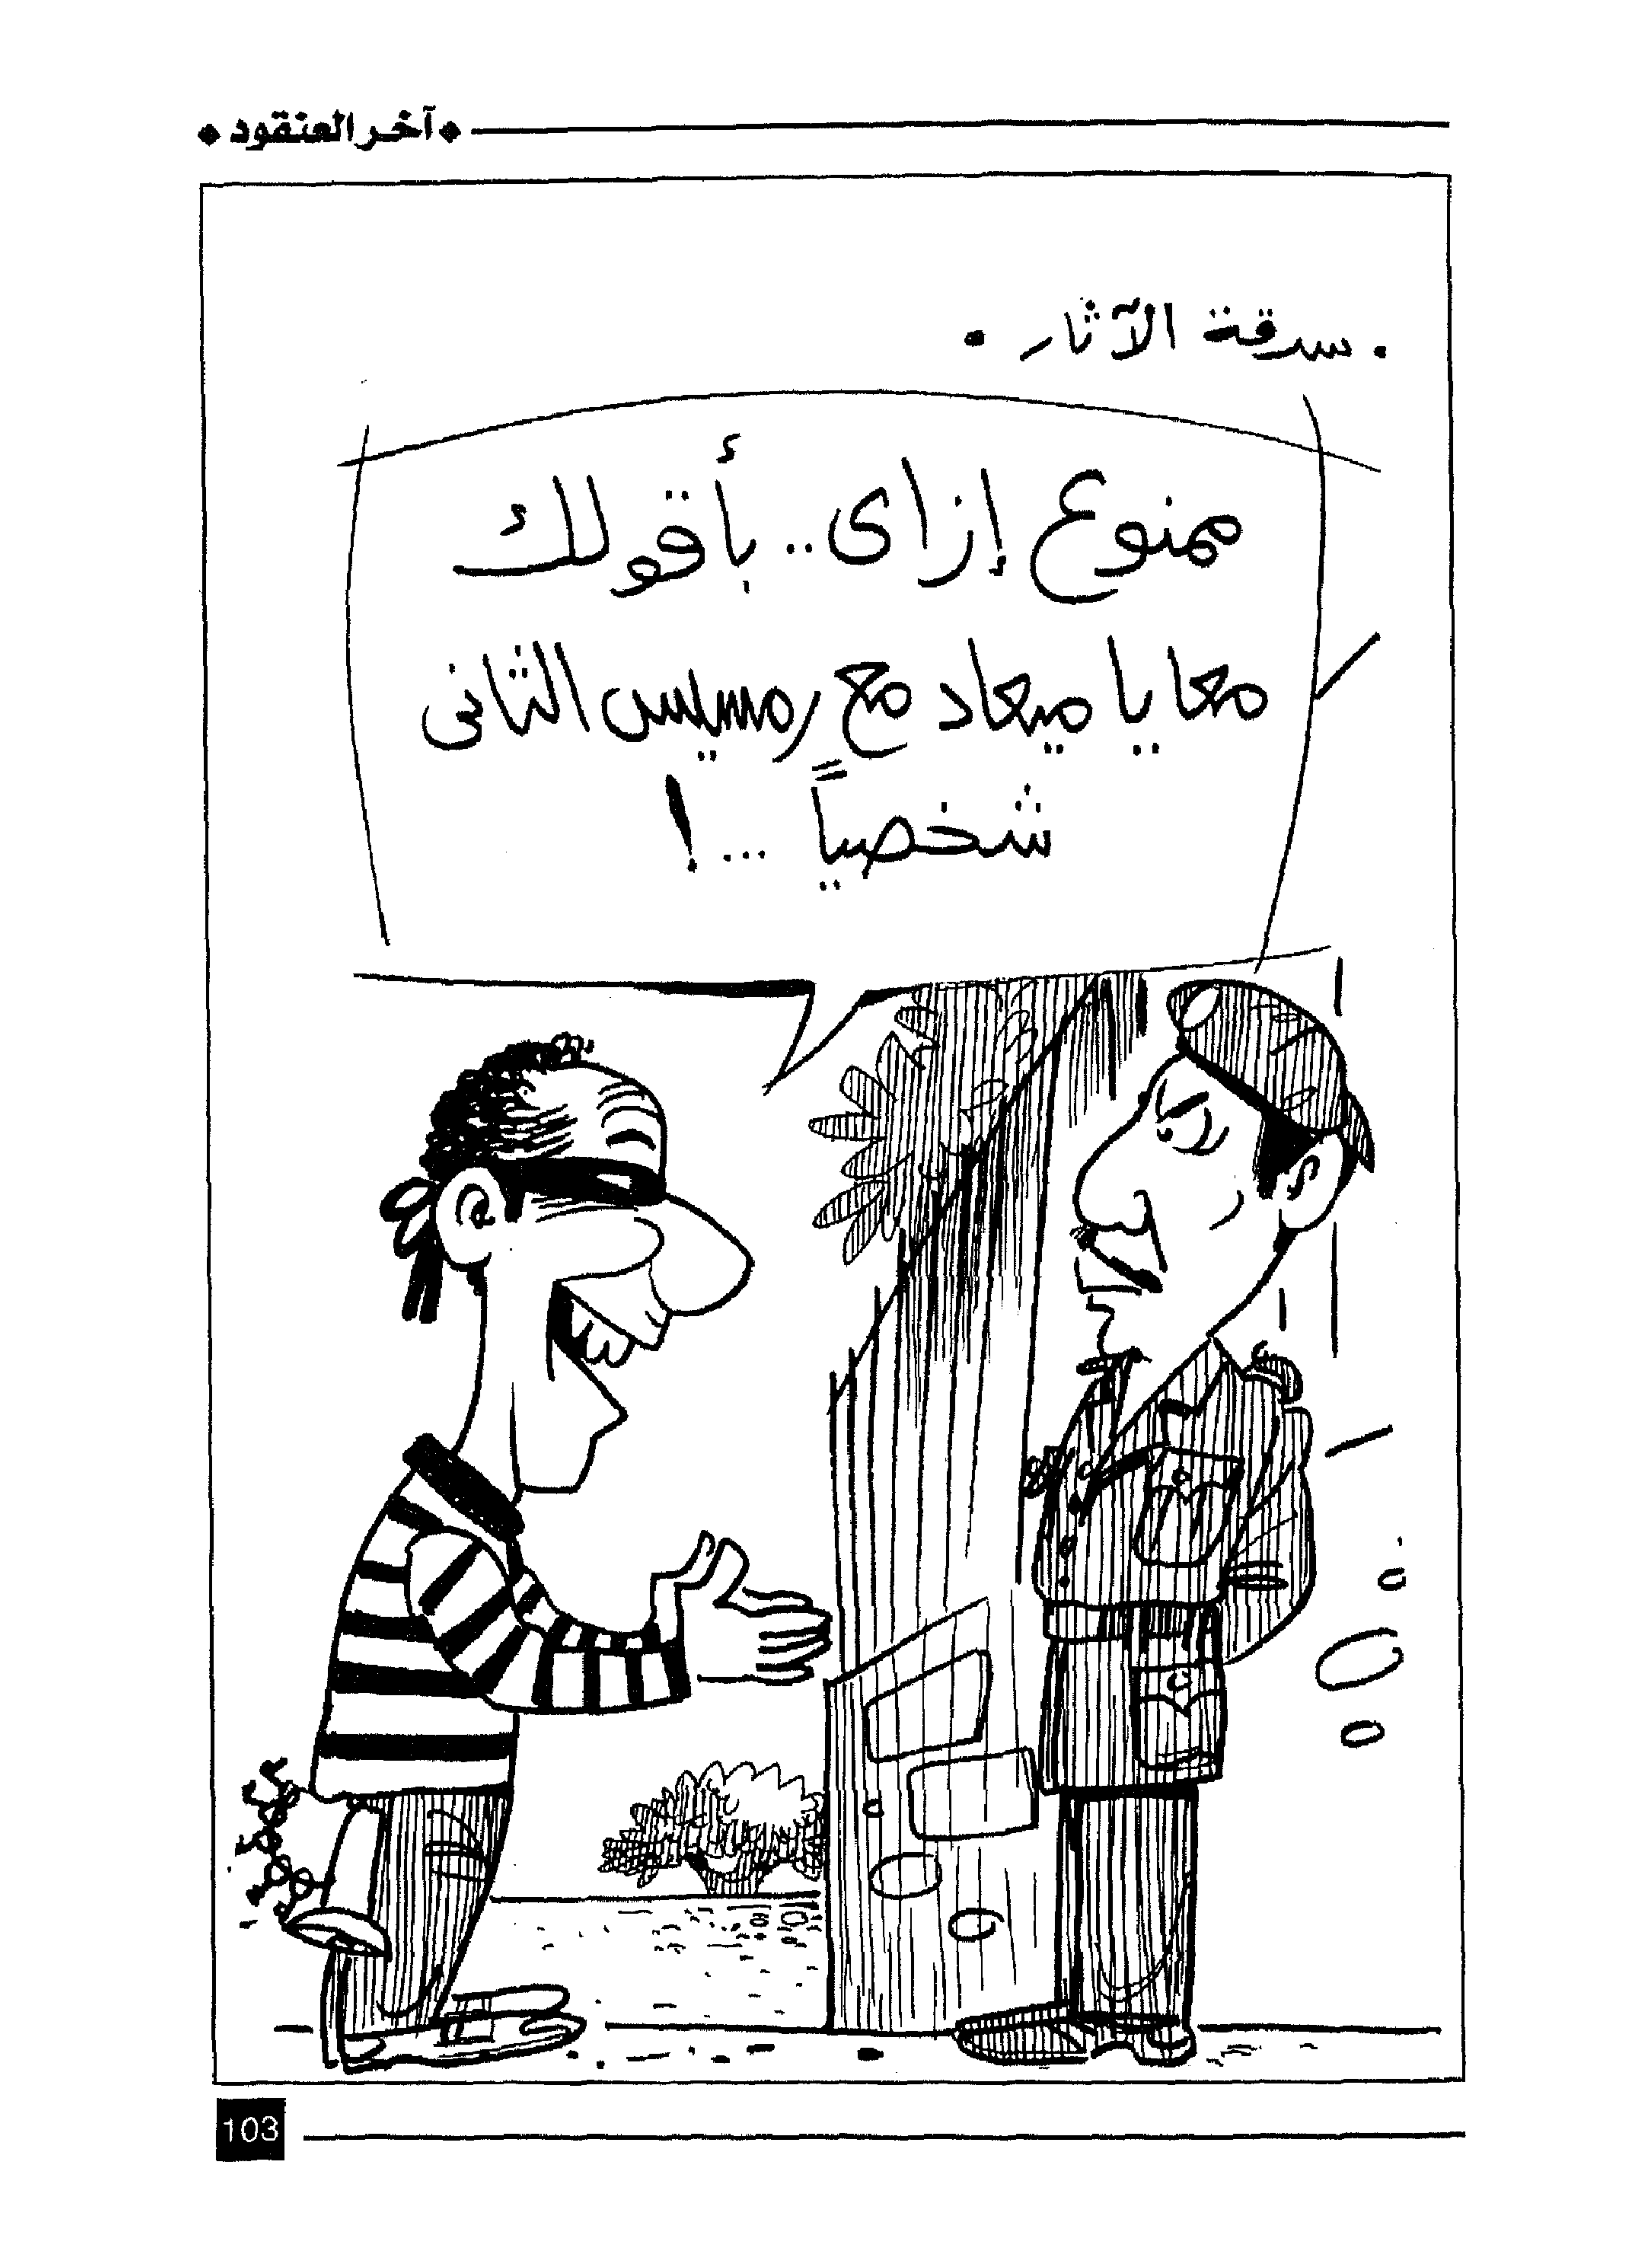 آخر العنقود
. سرقة الآثار .
ممنوع إزاى .. بأقولك
معايا ميعاد مع رمسيس الثانى
شخصياً ... !
103